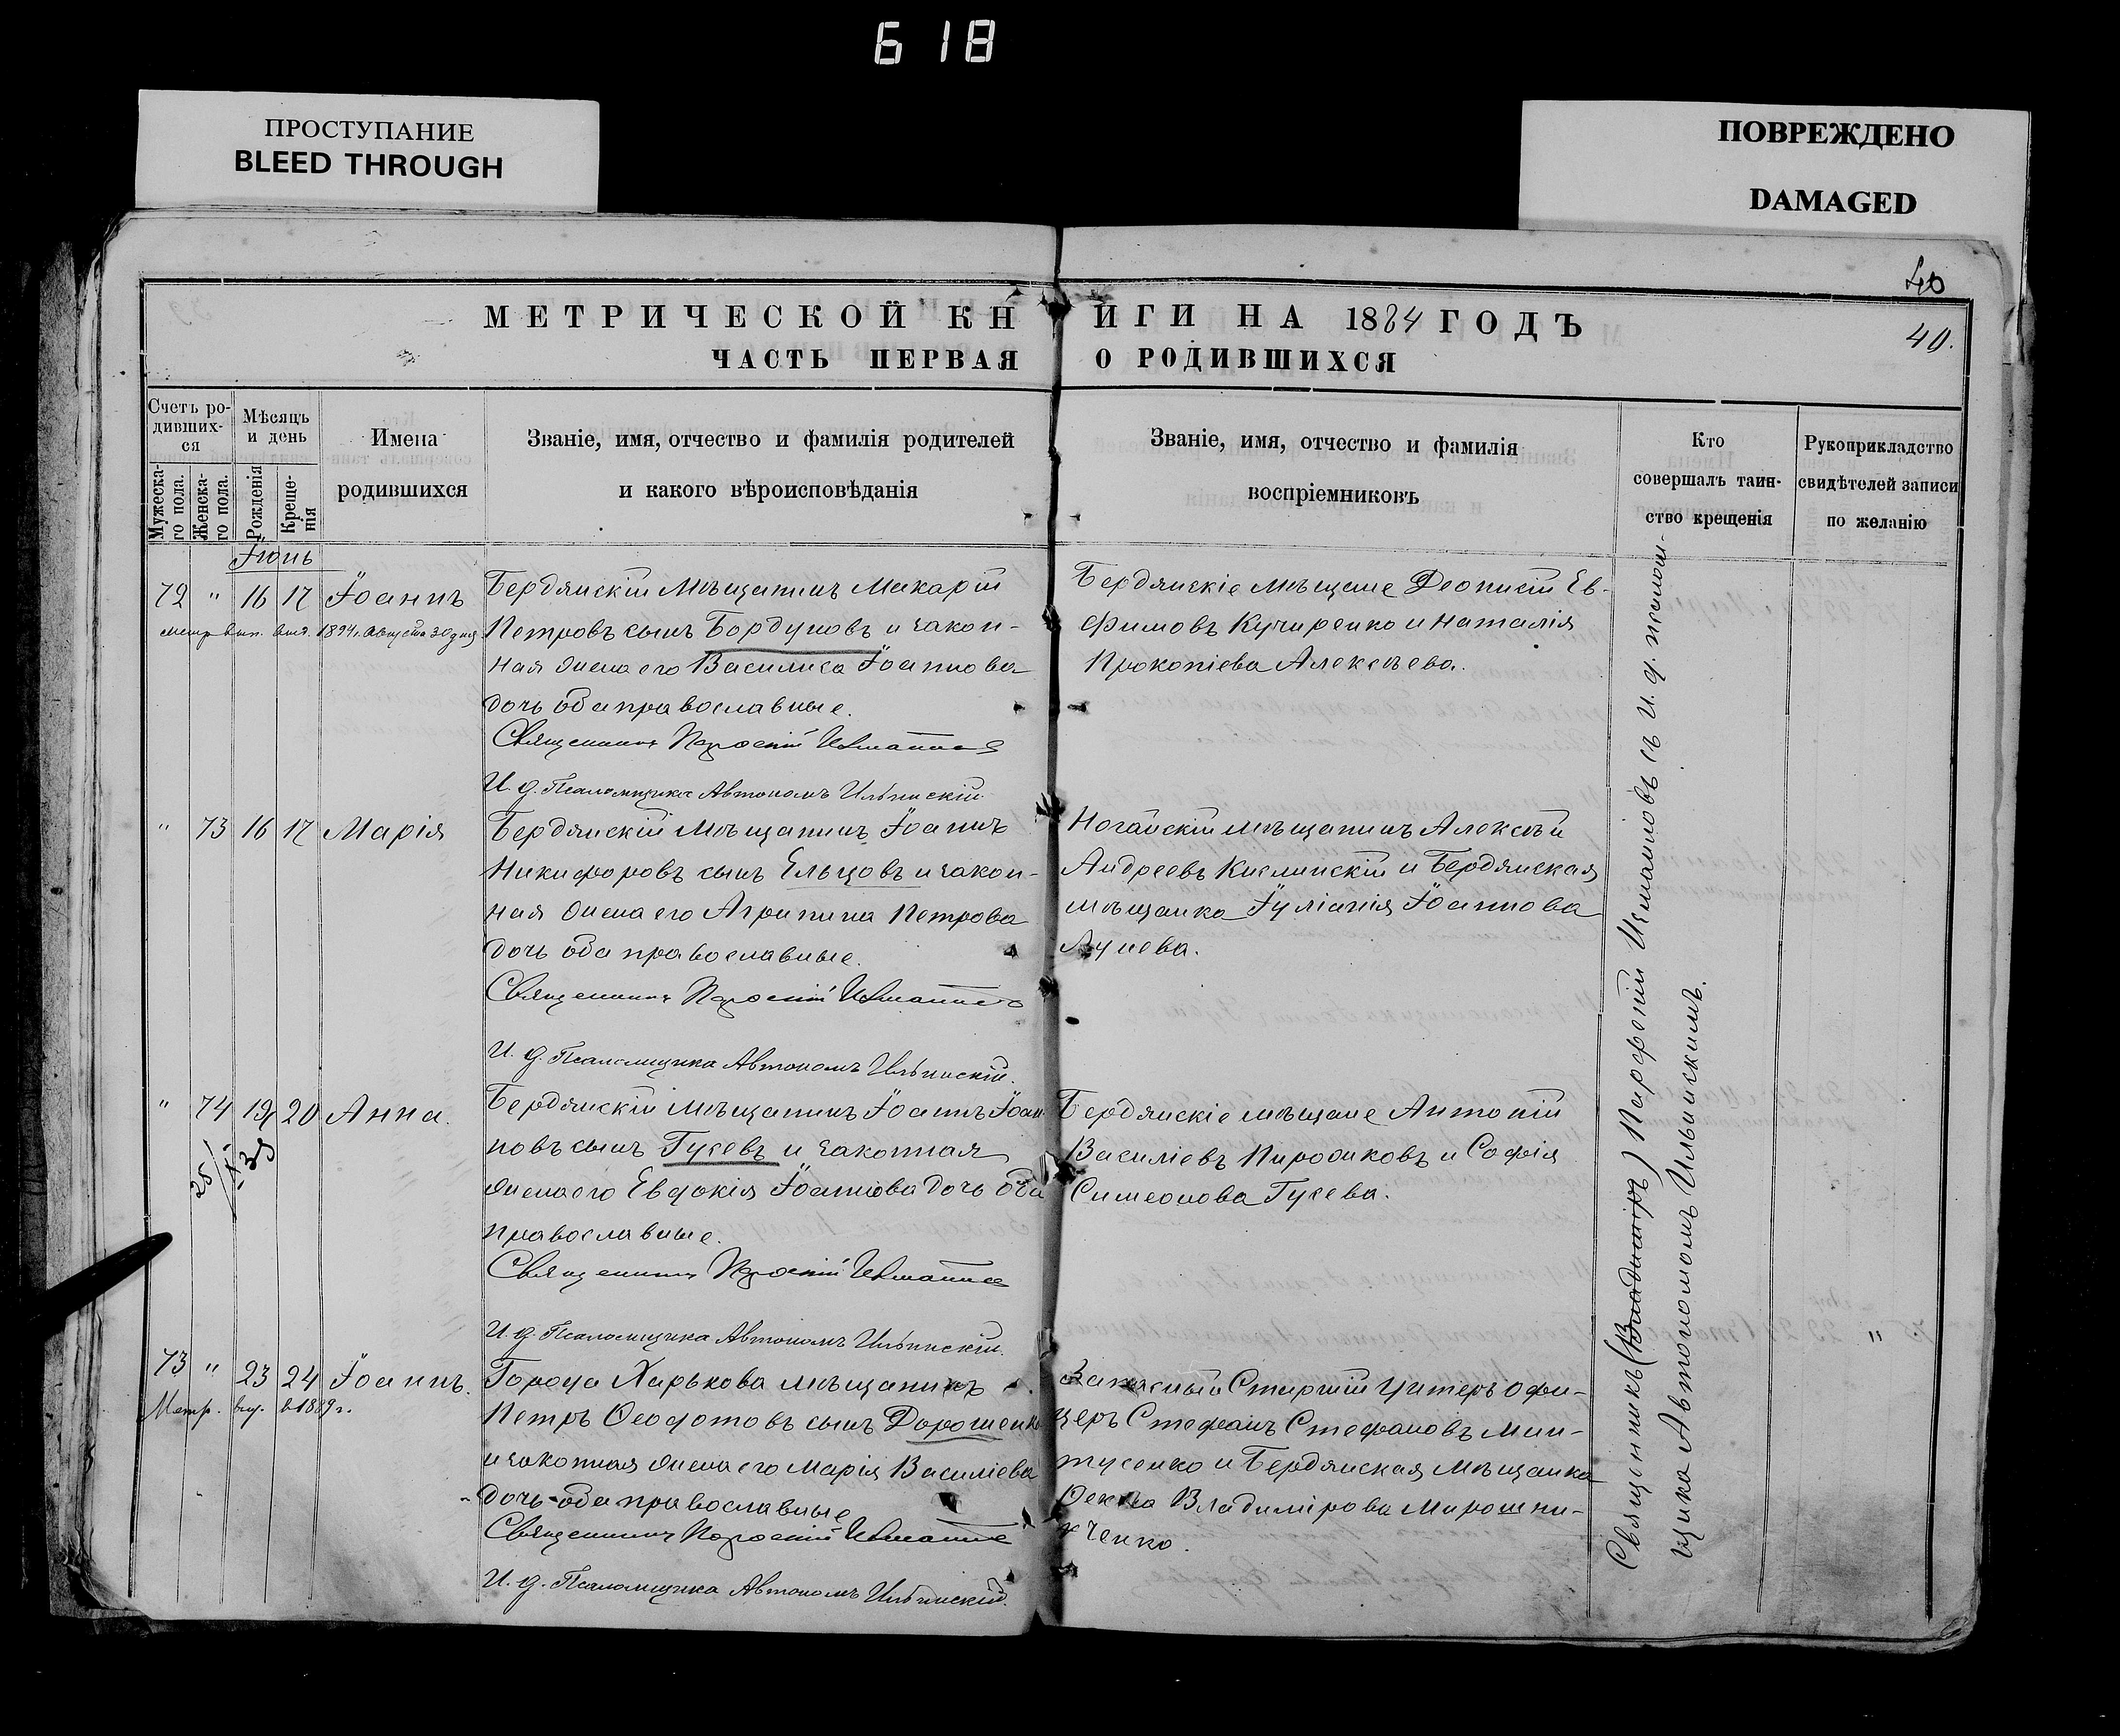 618
ПРОСТУПАНИЕ
BLEED THROUGH
ПОВРЕЖДЕНО
DAMAGED
40
40.
МЕТРИЧЕСКОЙ КНИГИ НА 1884 ГОДЪ
ЧАСТЬ ПЕРВАЯ О РОДИВШИХСЯ
Счетъ ро-
дивших-
ся
Мужеска-
го пола.
Женска-
го пола.
Мѣсяцъ
и день
Рожденія
Креще-
нія
Имена
родившихся
Званіе, имя, отчество и фамилія родителей
и какого вѣроисповѣданія
Званіе, имя, отчество и фамилія
воспріемниковъ
Кто
совершалъ таин-
ство крещенія
Рукоприкладство
свидѣтелей записи
по желанію
Іюнь
72 " 16 17 Іоаннъ
метр. вып. выд. 1894 г. Августа 30 дня
Бердянскій Мѣщанинъ Макарій
Петровъ сынъ Бордуновъ и закон-
ная жена его Василиса Іоаннова
дочь оба православные.
Священникъ Парѳеній
И. д. Псаломщика Автономъ Ильинскій.
Бердянскіе мѣщане Діонисій Ев-
фимовъ Кучиренко и Наталія
Прокопіева Алексѣева.
" 73 16 17 Марія
Бердянскій Мѣщанинъ Іоаннъ
Никифоровъ сынъ Ельцовъ и закон-
ная жена его Агрипина Петрова
дочь оба православные.
Священникъ Парѳеній
И. д. Псаломщика Автономъ Ильинскій.
Ногайскій мѣщанинъ Алексѣй
Андреевъ Кислинскій и Бердянская
мѣщанка Іуліанія Іоаннова
" 74 19 20 Анна.
Бердянскій Мѣщанинъ Іоаннъ Іоан-
новъ сынъ Гусевъ и законная
жена его Евдокія Іоаннова дочь оба
православные.
Священникъ Парѳеній
И. д. Псаломщика Автономъ Ильинскій.
Бердянскіе мѣщане Антоній
Василіевъ Пирожковъ и Софія
Симеонова Гусева.
73 " 23 24 Іоаннъ.
Метр. выд. в 1889 г.
Города Харькова мѣщанинъ
Петръ Ѳеодотовъ сынъ Дорошенко
и законная жена его Марія Василіева
дочь оба православные
Священникъ Парѳеній
И. д. Псаломщика Автономъ Ильинскій.
Запасный Старшій Унтеръ Офи-
церъ Стефанъ Стефановъ Мин-
тусенко и Бердянская Мѣщанка
Ѳекла Владимірова Мирошни-
ченко.
Священникъ (Владиміръ) Парфеній с И. д. псалом-
щика Автономомъ Ильинскимъ.